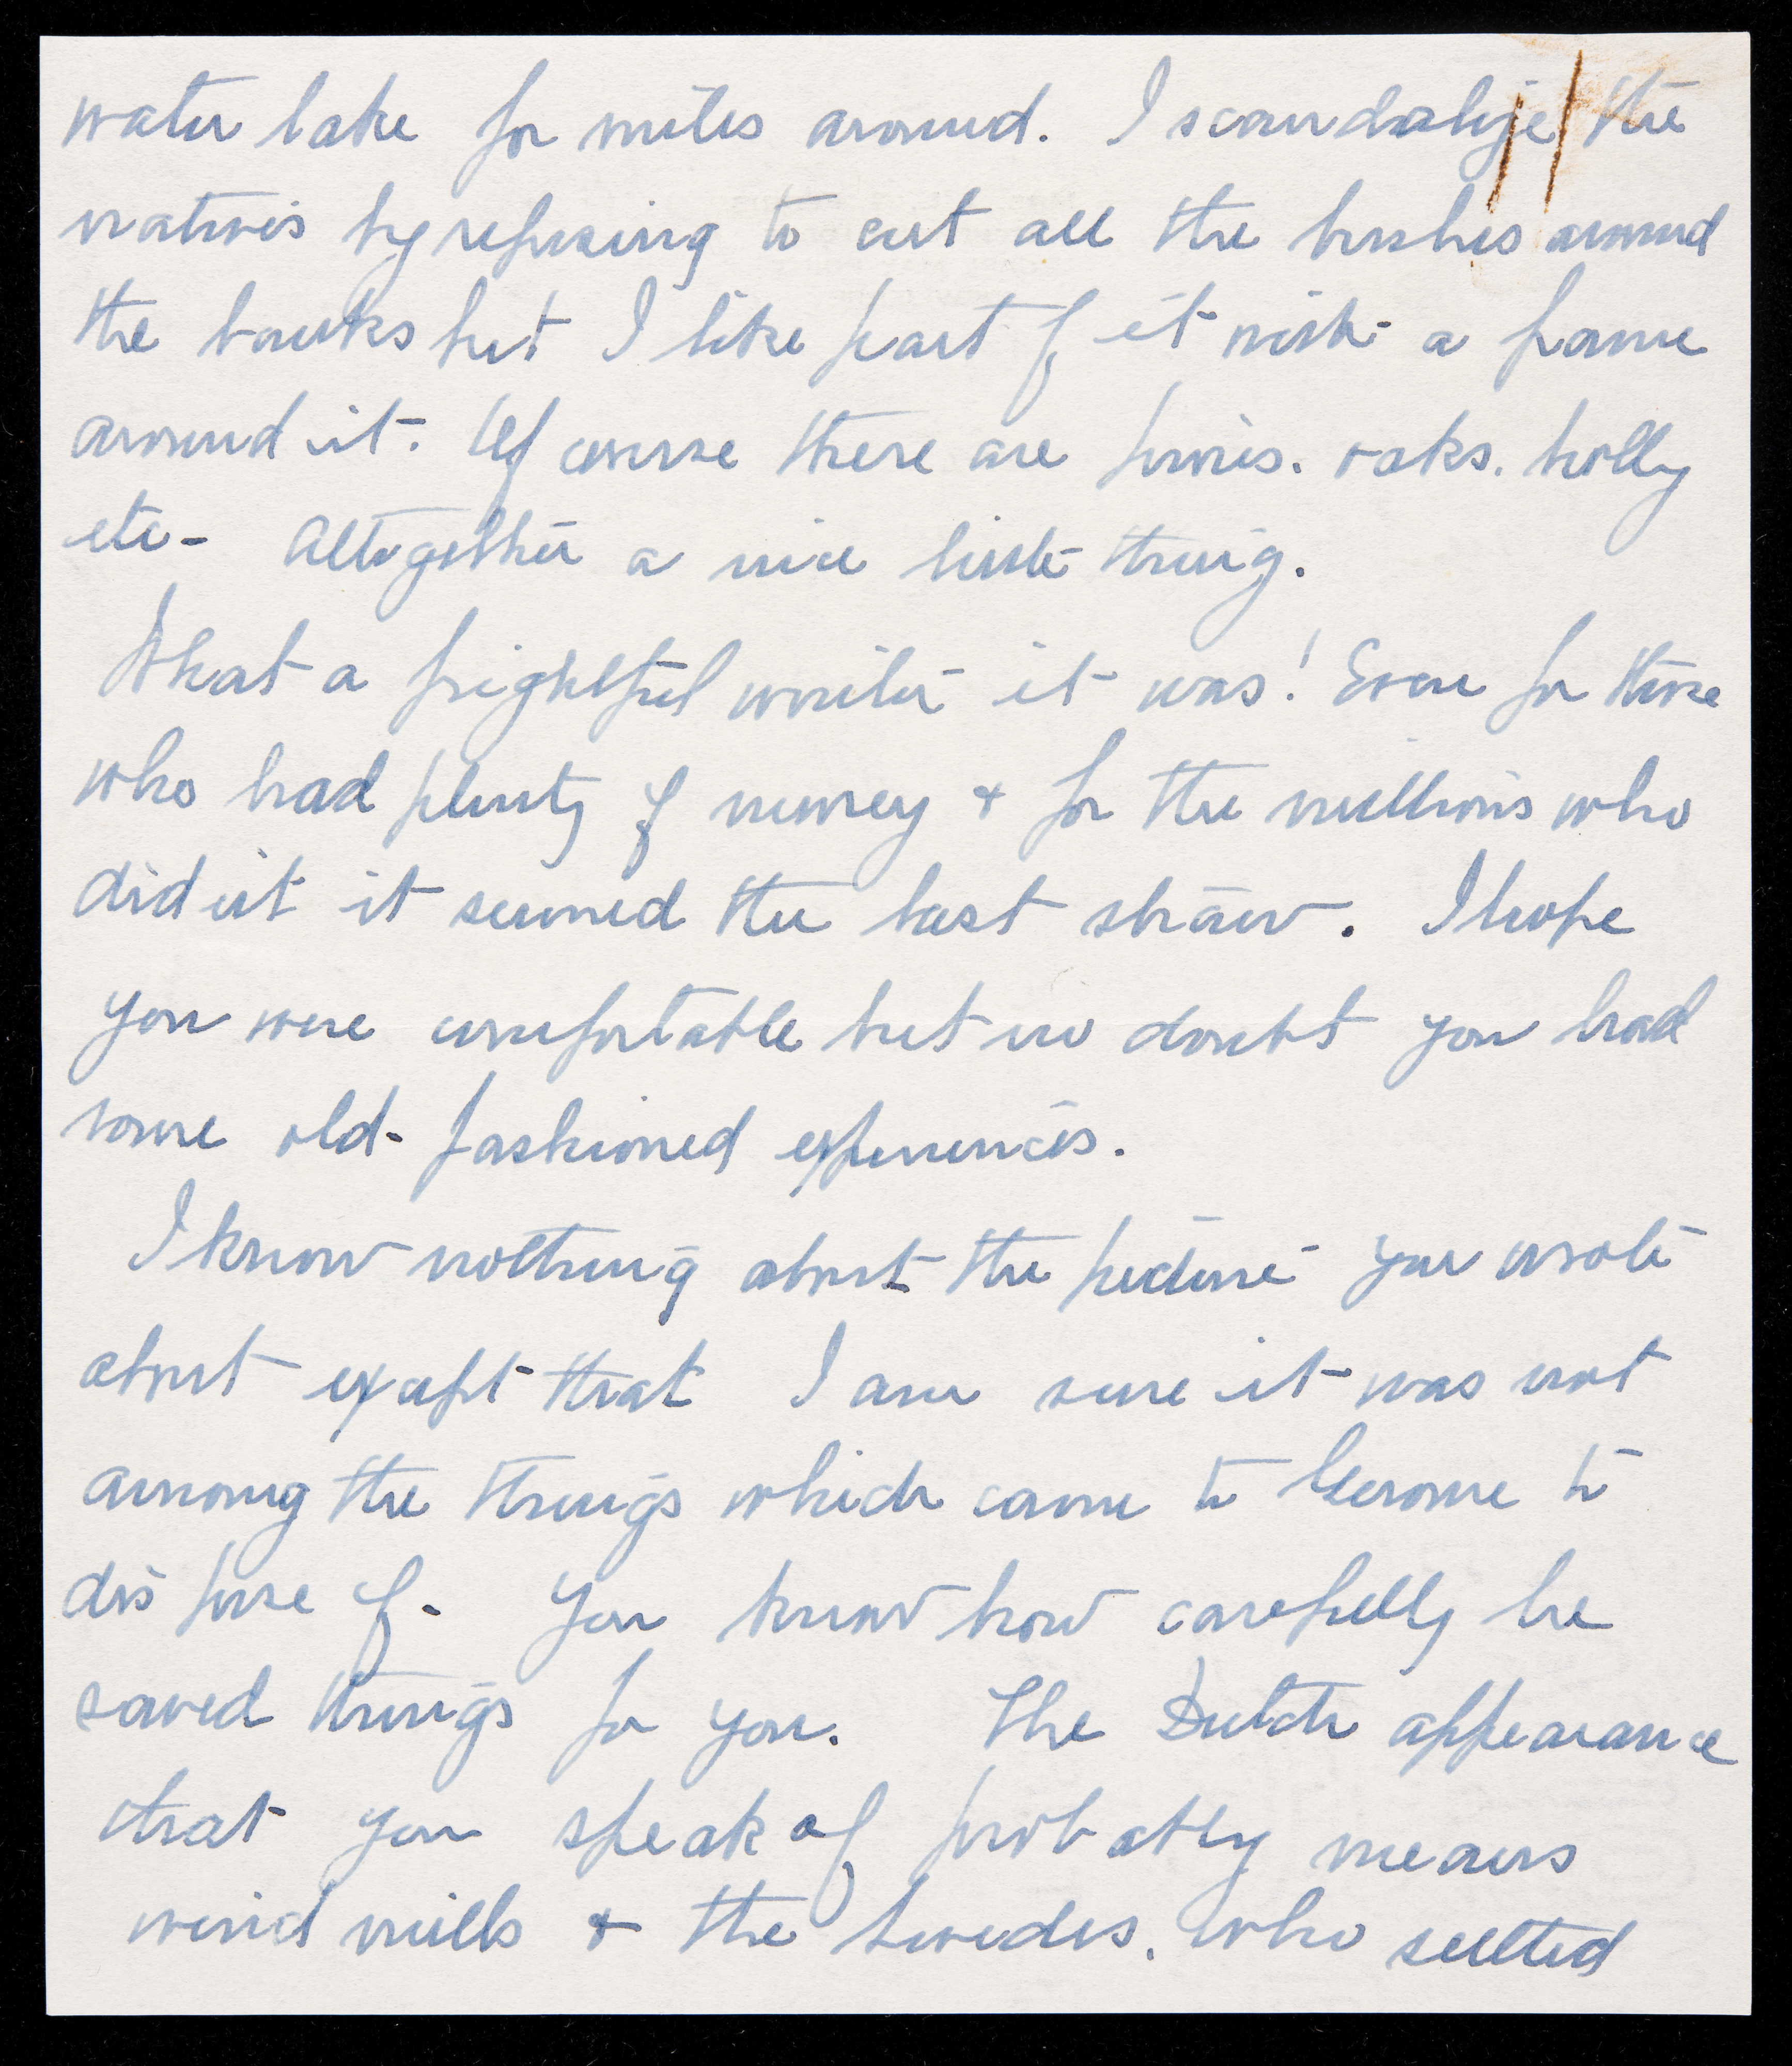 water lake for miles around. I scandalize the
natives by refusing to cut all the bushes around
the banks but I like part of it with a frame
around it. Of course there are pines. oaks. holly
etc- Altogether a nice little thing.
What a frightful winter it was! Even for those
who had plenty of money + for the millions who
didn't it seemed the last straw. I hope
you were comfortable but no doubt you had
some old-fashioned experiences.
I know nothing about the picture you wrote
about except that I am sure it was not
among the things which came to Gerome to
dispose of- You know how carefully he
saved things for you. The Dutch appearance
that you speak of probably means
wind mills + the Swedes. who settled